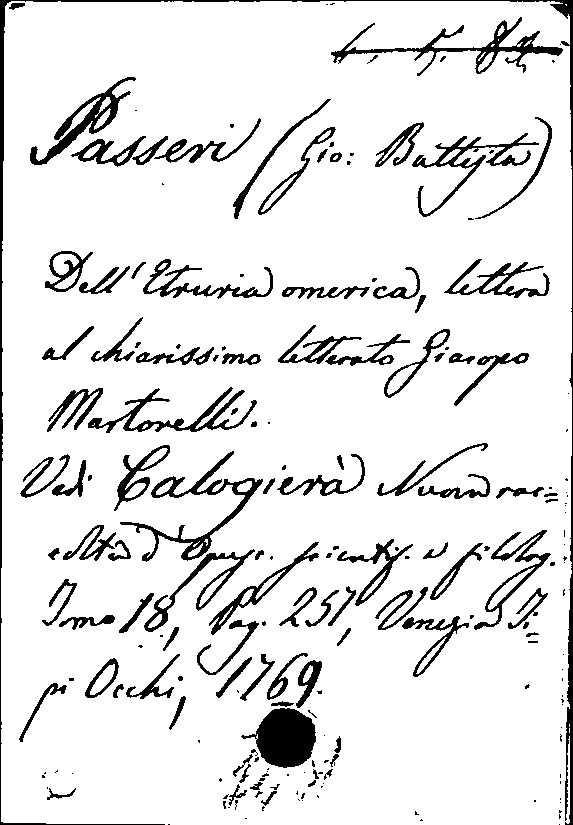 Passeri (Gio: Battista)
Dell'Etruria omerica, lettera
al chiarissimo letterato Giacopo
Martorelli.
Vedi Calogierà Nuova rac=
colta d'Opusc. scientif. e filolog.
Tomo 18, Pag. 257, Venezia Ti=
pi Occhi, 1769.